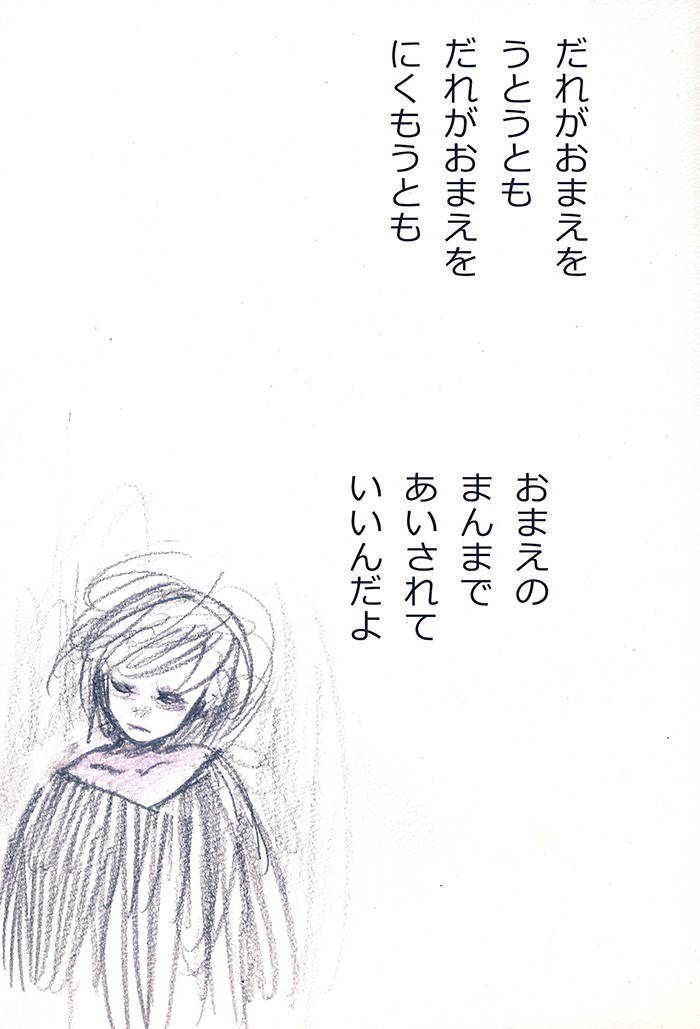 だれがおまえを
うとうとも
だれがおまえを
にくもうとも
おまえの
まんまで
あいされて
いいんだよ